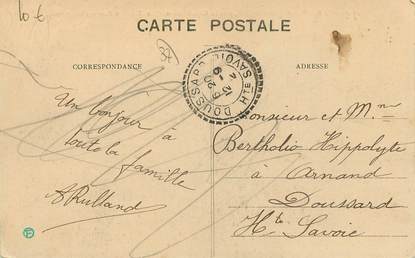 10 €
CARTE POSTALE
CORRESPONDANCE
ADRESSE
DOUSSARD
Hte SAVOIE
Un bonjour à
toute la
famille
A Rulland
Monsieur et Mme
Berthollo Hippolyte
à Arnand
Doussard
Hte Savoie